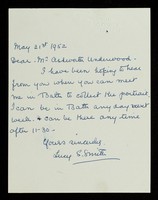 May 21st 1952
Dear Mr Ashwater Underwood.
I have been hoping to hear
from you when you can meet
me in Bath to collect the portrait
I can be in Bath any day next
week & can be there any time
after 11-30.
Yours sincerely,
Lucy E. Smith